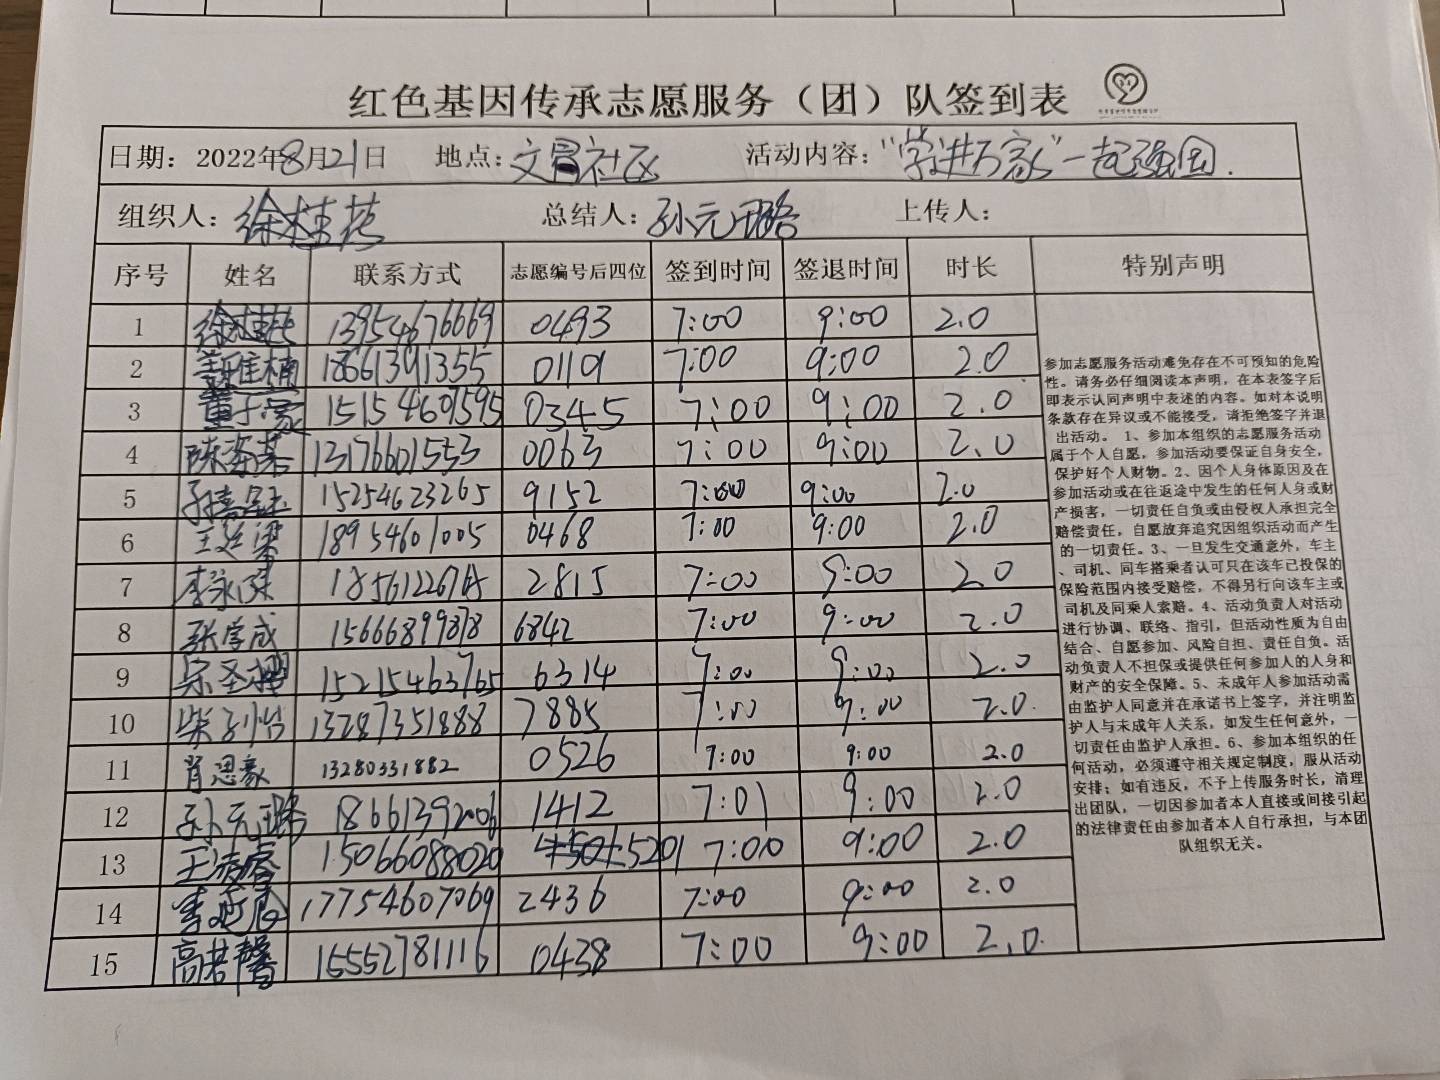 红色基因传承志愿服务（团）队签到表
日期：2022年8月21日 地点：文昌社区 活动内容：“学进万家”一起强国.
组织人：徐桂花 总结人：孙元璐 上传人：
序号 姓名 联系方式 志愿编号后四位 签到时间 签退时间 时长 特别声明
1 徐桂花 13954676669 0493 7:00 9:00 2.0
2 18661391355 0119 7:00 9:00 2.0
3 董子豪 15154607595 0345 7:00 9:00 2.0
4 13176601553 0063 7:00 9:00 2.0
5 15254623265 9152 7:00 9:00 2.0
6 18954601005 0468 7:00 9:00 2.0
7 2815 7:00 9:00 2.0
8 张学成 15666899878 6842 7:00 9:00 2.0
9 15215463765 6314 7:00 9:00 2.0
10 柴子怡 13287351888 7885 7:00 9:00 2.0
11 肖思豪 13280331882 0526 7:00 9:00 2.0
12 孙元璐 18661392006 1412 7:01 9:00 2.0
13 15066088020 5201 7:00 9:00 2.0
14 17754607069 2436 7:00 9:00 2.0
15 高若馨 15552781116 0438 7:00 9:00 2.0
参加志愿服务活动难免存在不可预知的危险
性。请务必仔细阅读本声明，在本表签字后
即表示认同声明中表述的内容。如对本说明
条款存在异议或不能接受，请拒绝签字并退
出活动。 1、参加本组织的志愿服务活动
属于个人自愿，参加活动要保证自身安全，
保护好个人财物。2、因个人身体原因及在
参加活动或在往返途中发生的任何人身或财
产损害，一切责任自负或由侵权人承担完全
赔偿责任，自愿放弃追究因组织活动而产生
的一切责任。3、一旦发生交通意外，车主
、司机、同车搭乘者认可只在该车已投保的
保险范围内接受赔偿，不得另行向该车主或
司机及同乘人索赔。4、活动负责人对活动
进行协调、联络、指引，但活动性质为自由
结合、自愿参加、风险自担、责任自负。活
动负责人不担保或提供任何参加人的人身和
财产的安全保障。5、未成年人参加活动需
由监护人同意并在承诺书上签字，并注明监
护人与未成年人关系，如发生任何意外，一
切责任由监护人承担。6、参加本组织的任
何活动，必须遵守相关规定制度，服从活动
安排；如有违反，不予上传服务时长，清理
出团队，一切因参加者本人直接或间接引起
的法律责任由参加者本人自行承担，与本团
队组织无关。